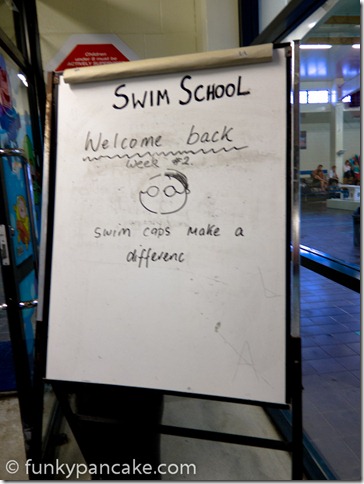 Children
SWIM SCHOOL
Welcome back
Week #2.
swim caps make a
differenc
© funkypancake.com